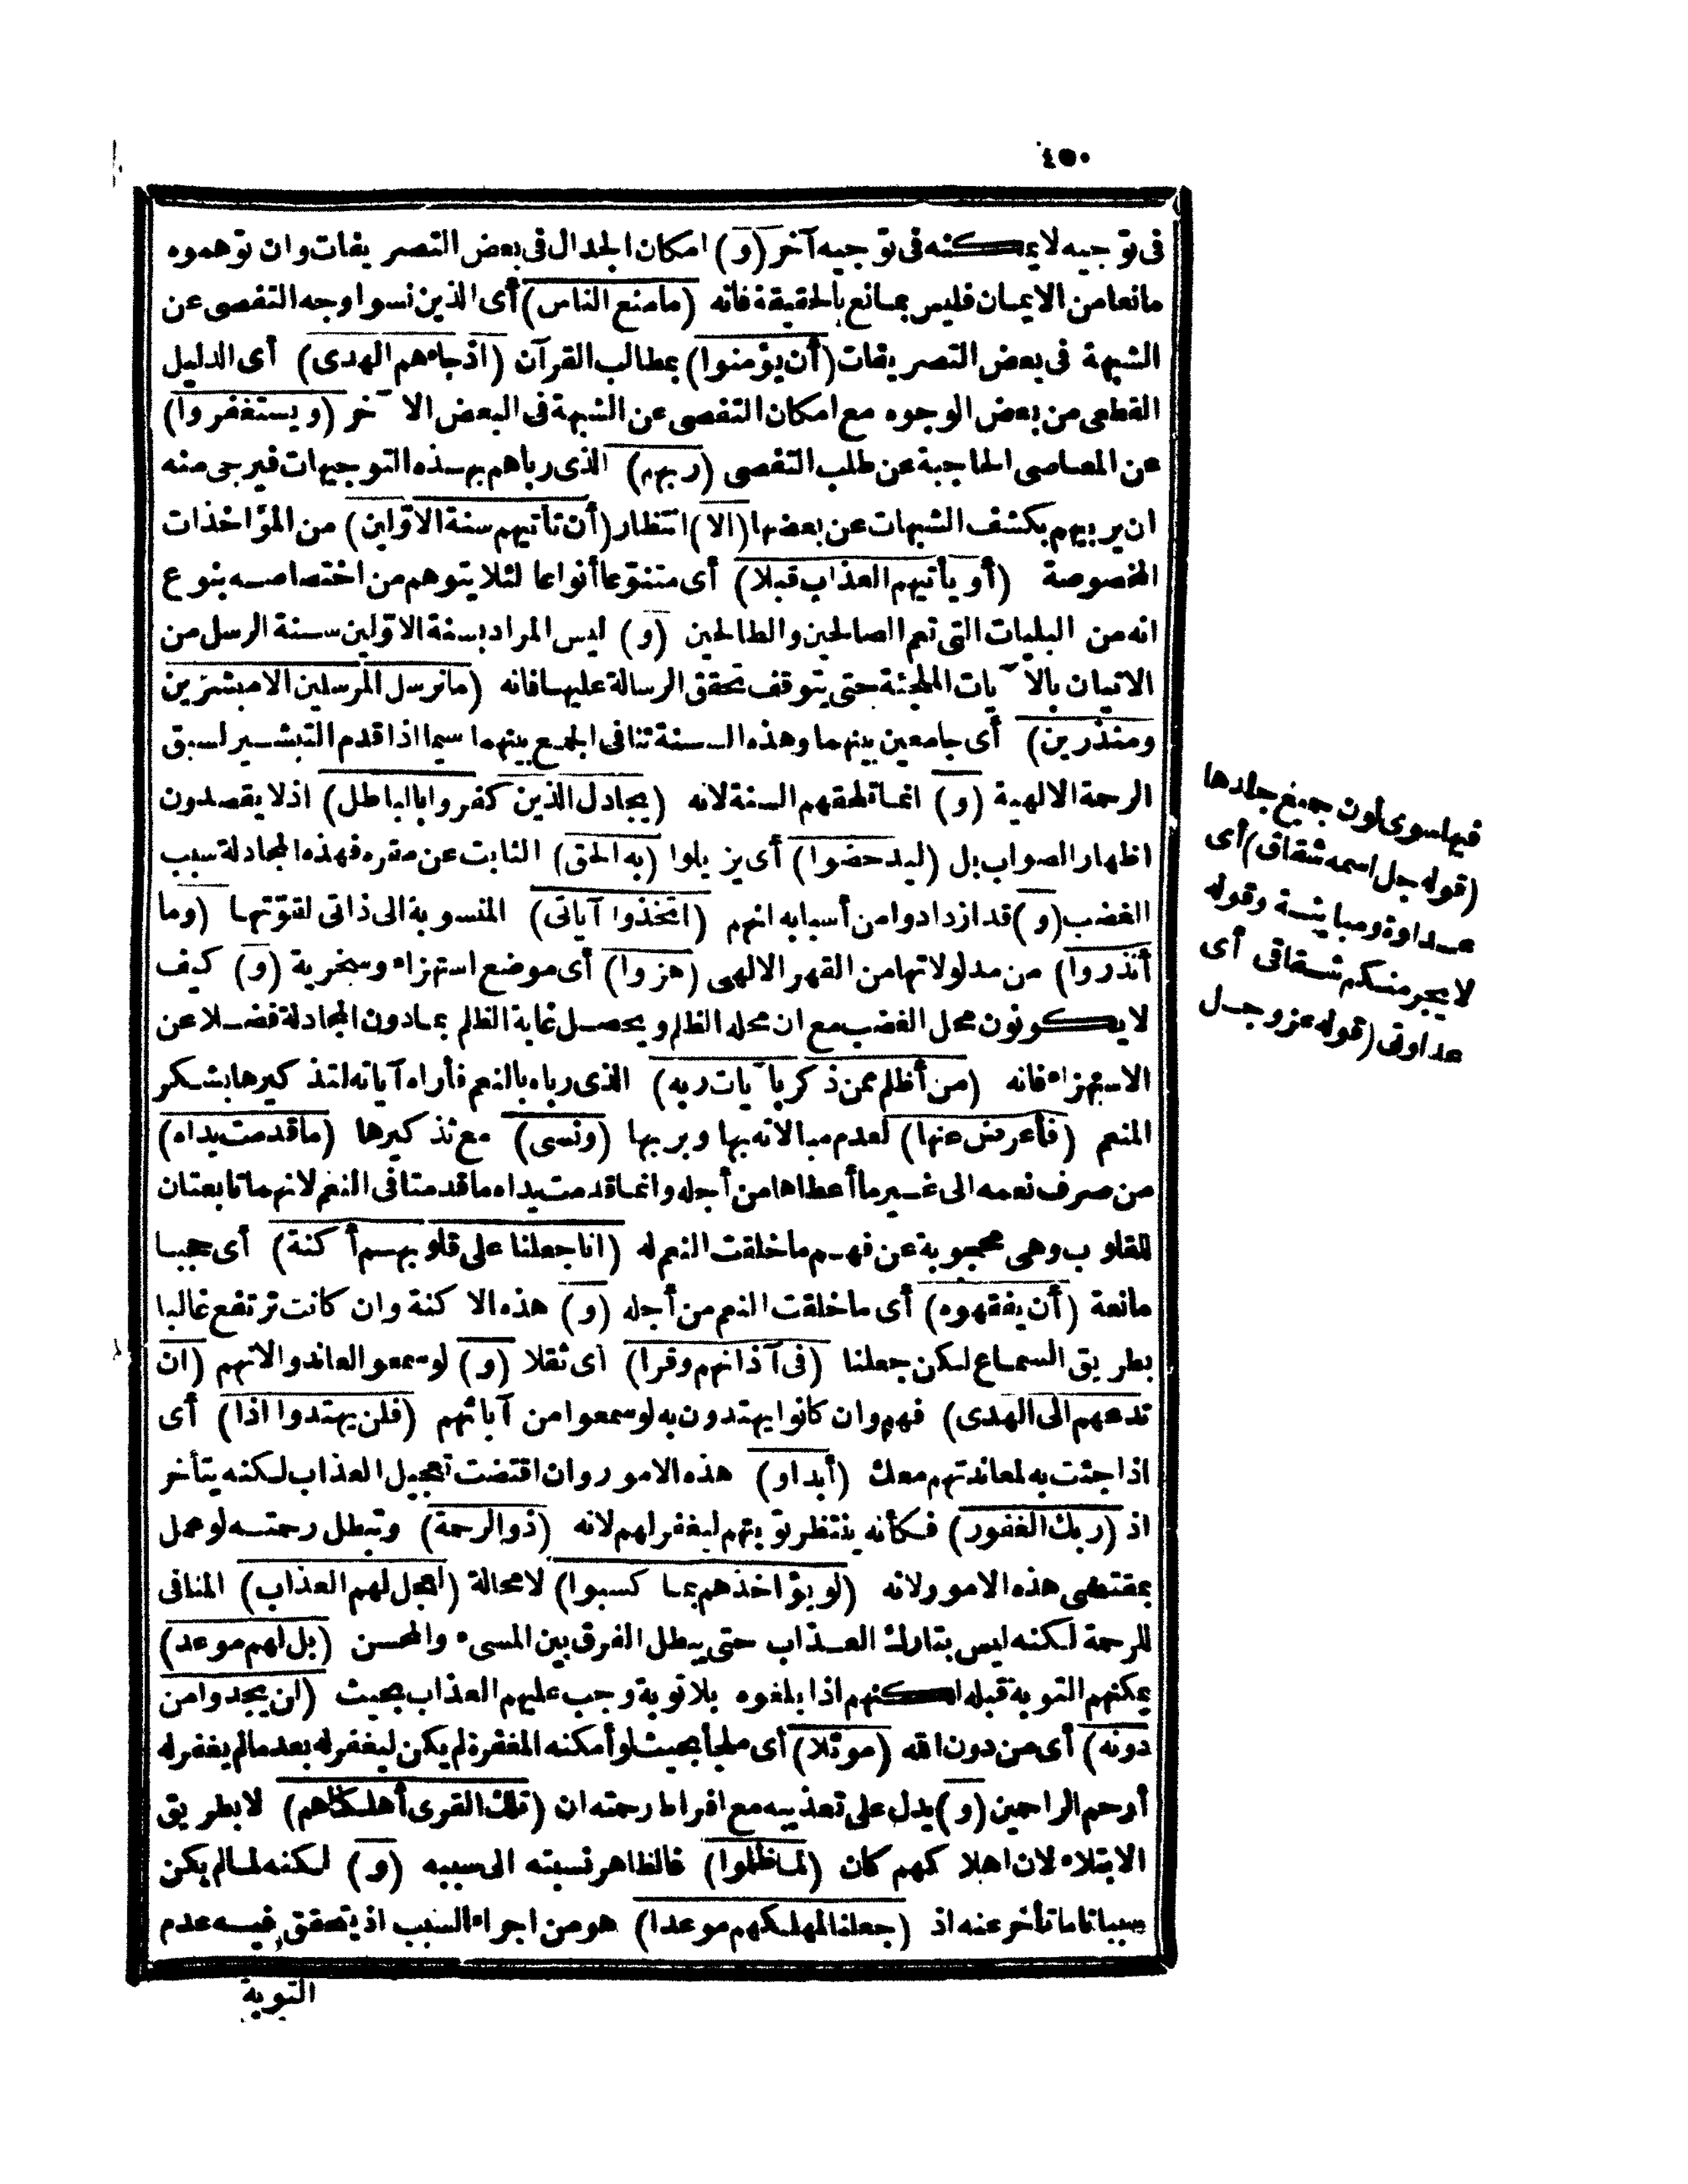 ٤٥٠
في توجيه لا يمكنه في توجيه آخر (و) امكان الجدال في بعض التصريفات وان توهموه
مانعا من الايمان فليس بمانع بالحقيقة فانه (ما منع الناس) أى الذين نسوا وجه التفصى عن
الشبهة فى بعض التصريفات (أن يؤمنوا) بمطالب القرآن (اذ جاءهم الهدى) أى الدليل
القطعى من بعض الوجوه مع امكان التفصى عن الشبهة فى البعض الآخر (ويستغفروا)
عن المعاصى الحاجبة عن طلب التفصى (ربهم) الذى رباهم بهذه التوجيهات فيرجى منه
ان يربيهم بكشف الشبهات عن بعضها (الا) انتظار (أن تأتيهم سنة الاوّلين) من المؤاخذات
المخصوصة (أو يأتيهم العذاب قبلا) أى متنوّعا أنواعا لئلا يتوهم من اختصاصه بنوع
انه من البليات التى تعم الصالحين والطالحين (و) ليس المراد بسنة الاوّلين سنة الرسل من
الاتيان بالآيات الملجئة حتى يتوقف تحقق الرسالة عليها فانه (ما نرسل المرسلين الا مبشرين
ومنذرين) أى جامعين بينهما وهذه السنة تنافى الجمع بينهما سيما اذا قدم التبشير لسبق
الرحمة الالهية (و) انما تلحقهم السنة لانه (يجادل الذين كفروا بالباطل) اذ لا يقصدون
اظهار الصواب بل (ليدحضوا) أى يزيلوا (به الحق) الثابت عن مقره فهذه المجادلة سبب
الغضب (و) قد ازدادوا من أسبابه انهم (اتخذوا آياتى) المنسوبة الى ذاتى لقوّتها (وما
أنذروا) من مدلولاتها من القهر الالهى (هزوا) أى موضع استهزاء وسخرية (و) كيف
لا يكونون محل الغضب مع ان محله الظلم ويحصل غاية الظلم بما دون المجادلة فضلا عن
الاستهزاء فانه (من أظلم ممن ذكر بآيات ربه) الذى رباه بالنعم فأراه آياته لتذكيرها بشكر
المنعم (فأعرض عنها) لعدم مبالاته بها وبربها (ونسى) مع تذكيرها (ما قدمت يداه)
من صرف نعمه الى غير ما أعطاها من أجله وانما قدمت يداه ما قدمتا فى النعم لانهما تابعتان
للقلوب وهى محجوبة عن فهم ما خلقت النعم له (انا جعلنا على قلوبهم أكنة) أى حجبا
مانعة (أن يفقهوه) أى ما خلقت النعم من أجله (و) هذه الاكنة وان كانت ترتفع غالبا
بطريق السماع لكن جعلنا (فى آذانهم وقرا) أى ثقلا (و) لو سمعوا لعاندوا لانهم (ان
تدعهم الى الهدى) فهم وان كانوا يهتدون به لو سمعوا من آبائهم (فلن يهتدوا اذا) أى
اذا جئت به لمعاندتهم معك (أبدا و) هذه الامور وان اقتضت تعجيل العذاب لكنه يتأخر
اذ (ربك الغفور) فكأنه ينتظر توبتهم ليغفر لهم لانه (ذو الرحمة) وتبطل رحمته لو عمل
بمقتضى هذه الامور لانه (لو يؤاخذهم بما كسبوا) لا محالة (لعجل لهم العذاب) المنافى
للرحمة لكنه ليس بتارك العذاب حتى يبطل الفرق بين المسىء والمحسن (بل لهم موعد)
يمكنهم التوبة قبله لكنهم اذا بلغوه بلا توبة وجب عليهم العذاب بحيث (ان يجدوا من
دونه) أى من دون الله (موئلا) أى ملجأ بحيث لو أمكنه المغفرة لم يكن ليغفر له بعد ما لم يغفر له
أرحم الراحمين (و) يدل على تعذيبه مع افراط رحمته ان (تلك القرى أهلكناهم) لا بطريق
الابتلاء لان اهلاكهم كان (لما ظلموا) فالظاهر نسبته الى سببه (و) لكنه لما لم يكن
سببا تاما تأخر عنه اذ (جعلنا لمهلكهم موعدا) هو من اجراء السبب اذ يتحقق فيه عدم
التوبة
فيها سوى لون جميع جلدها
(قوله جل اسمه شقاق) أى
عداوة ومباينة وقوله
لا يجرمنكم شقاقى أى
عداوتى (قوله عز وجل